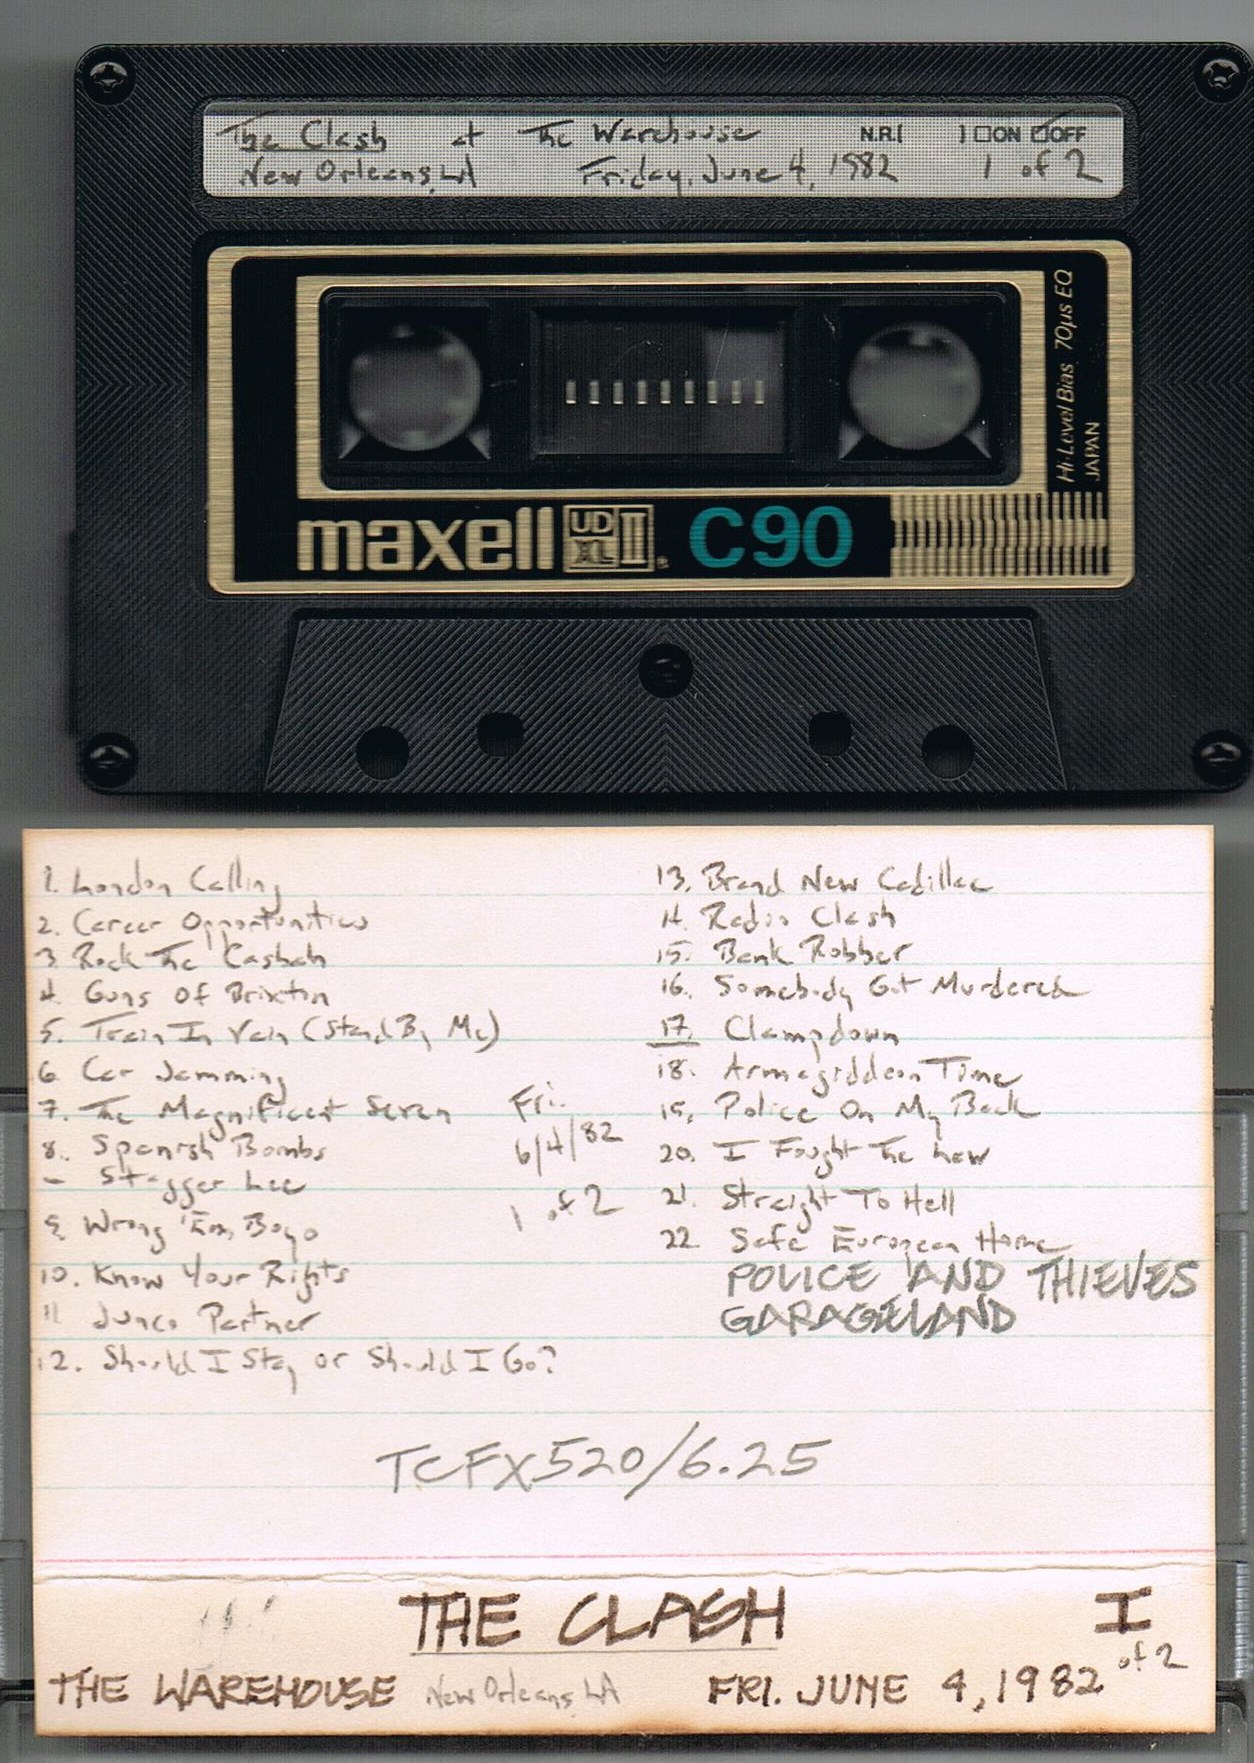 The Clash at The Warehouse N.R.[ ] ON OFF
New Orleans, LA Friday, June 4, 1982 1 of 2
Hi-Level Bias 70μs EQ
JAPAN
maxell UD XL II ® C90
1. London Calling
2. Career Opportunities
3. Rock The Casbah
4. Guns Of Brixton
5. Train In Vain (Stand By Me)
6. Car Jamming
7. The Magnificent Seven
8. Spanish Bombs
- Stagger Lee
9. Wrong 'Em Boyo
10. Know Your Rights
11 Junco Partner
12. Should I Stay or Should I Go?
Fri.
6/4/82
1 of 2
13. Brand New Cadillac
14. Radio Clash
15. Bank Robber
16. Somebody Got Murdered
17. Clampdown
18. Armagiddeon Time
19. Police On My Back
20. I Fought The Law
21. Straight To Hell
22. Safe European Home
POLICE AND THIEVES
GARAGELAND
TCFX520/6.25
THE CLASH I
of 2
THE WAREHOUSE New Orleans, LA FRI. JUNE 4, 1982